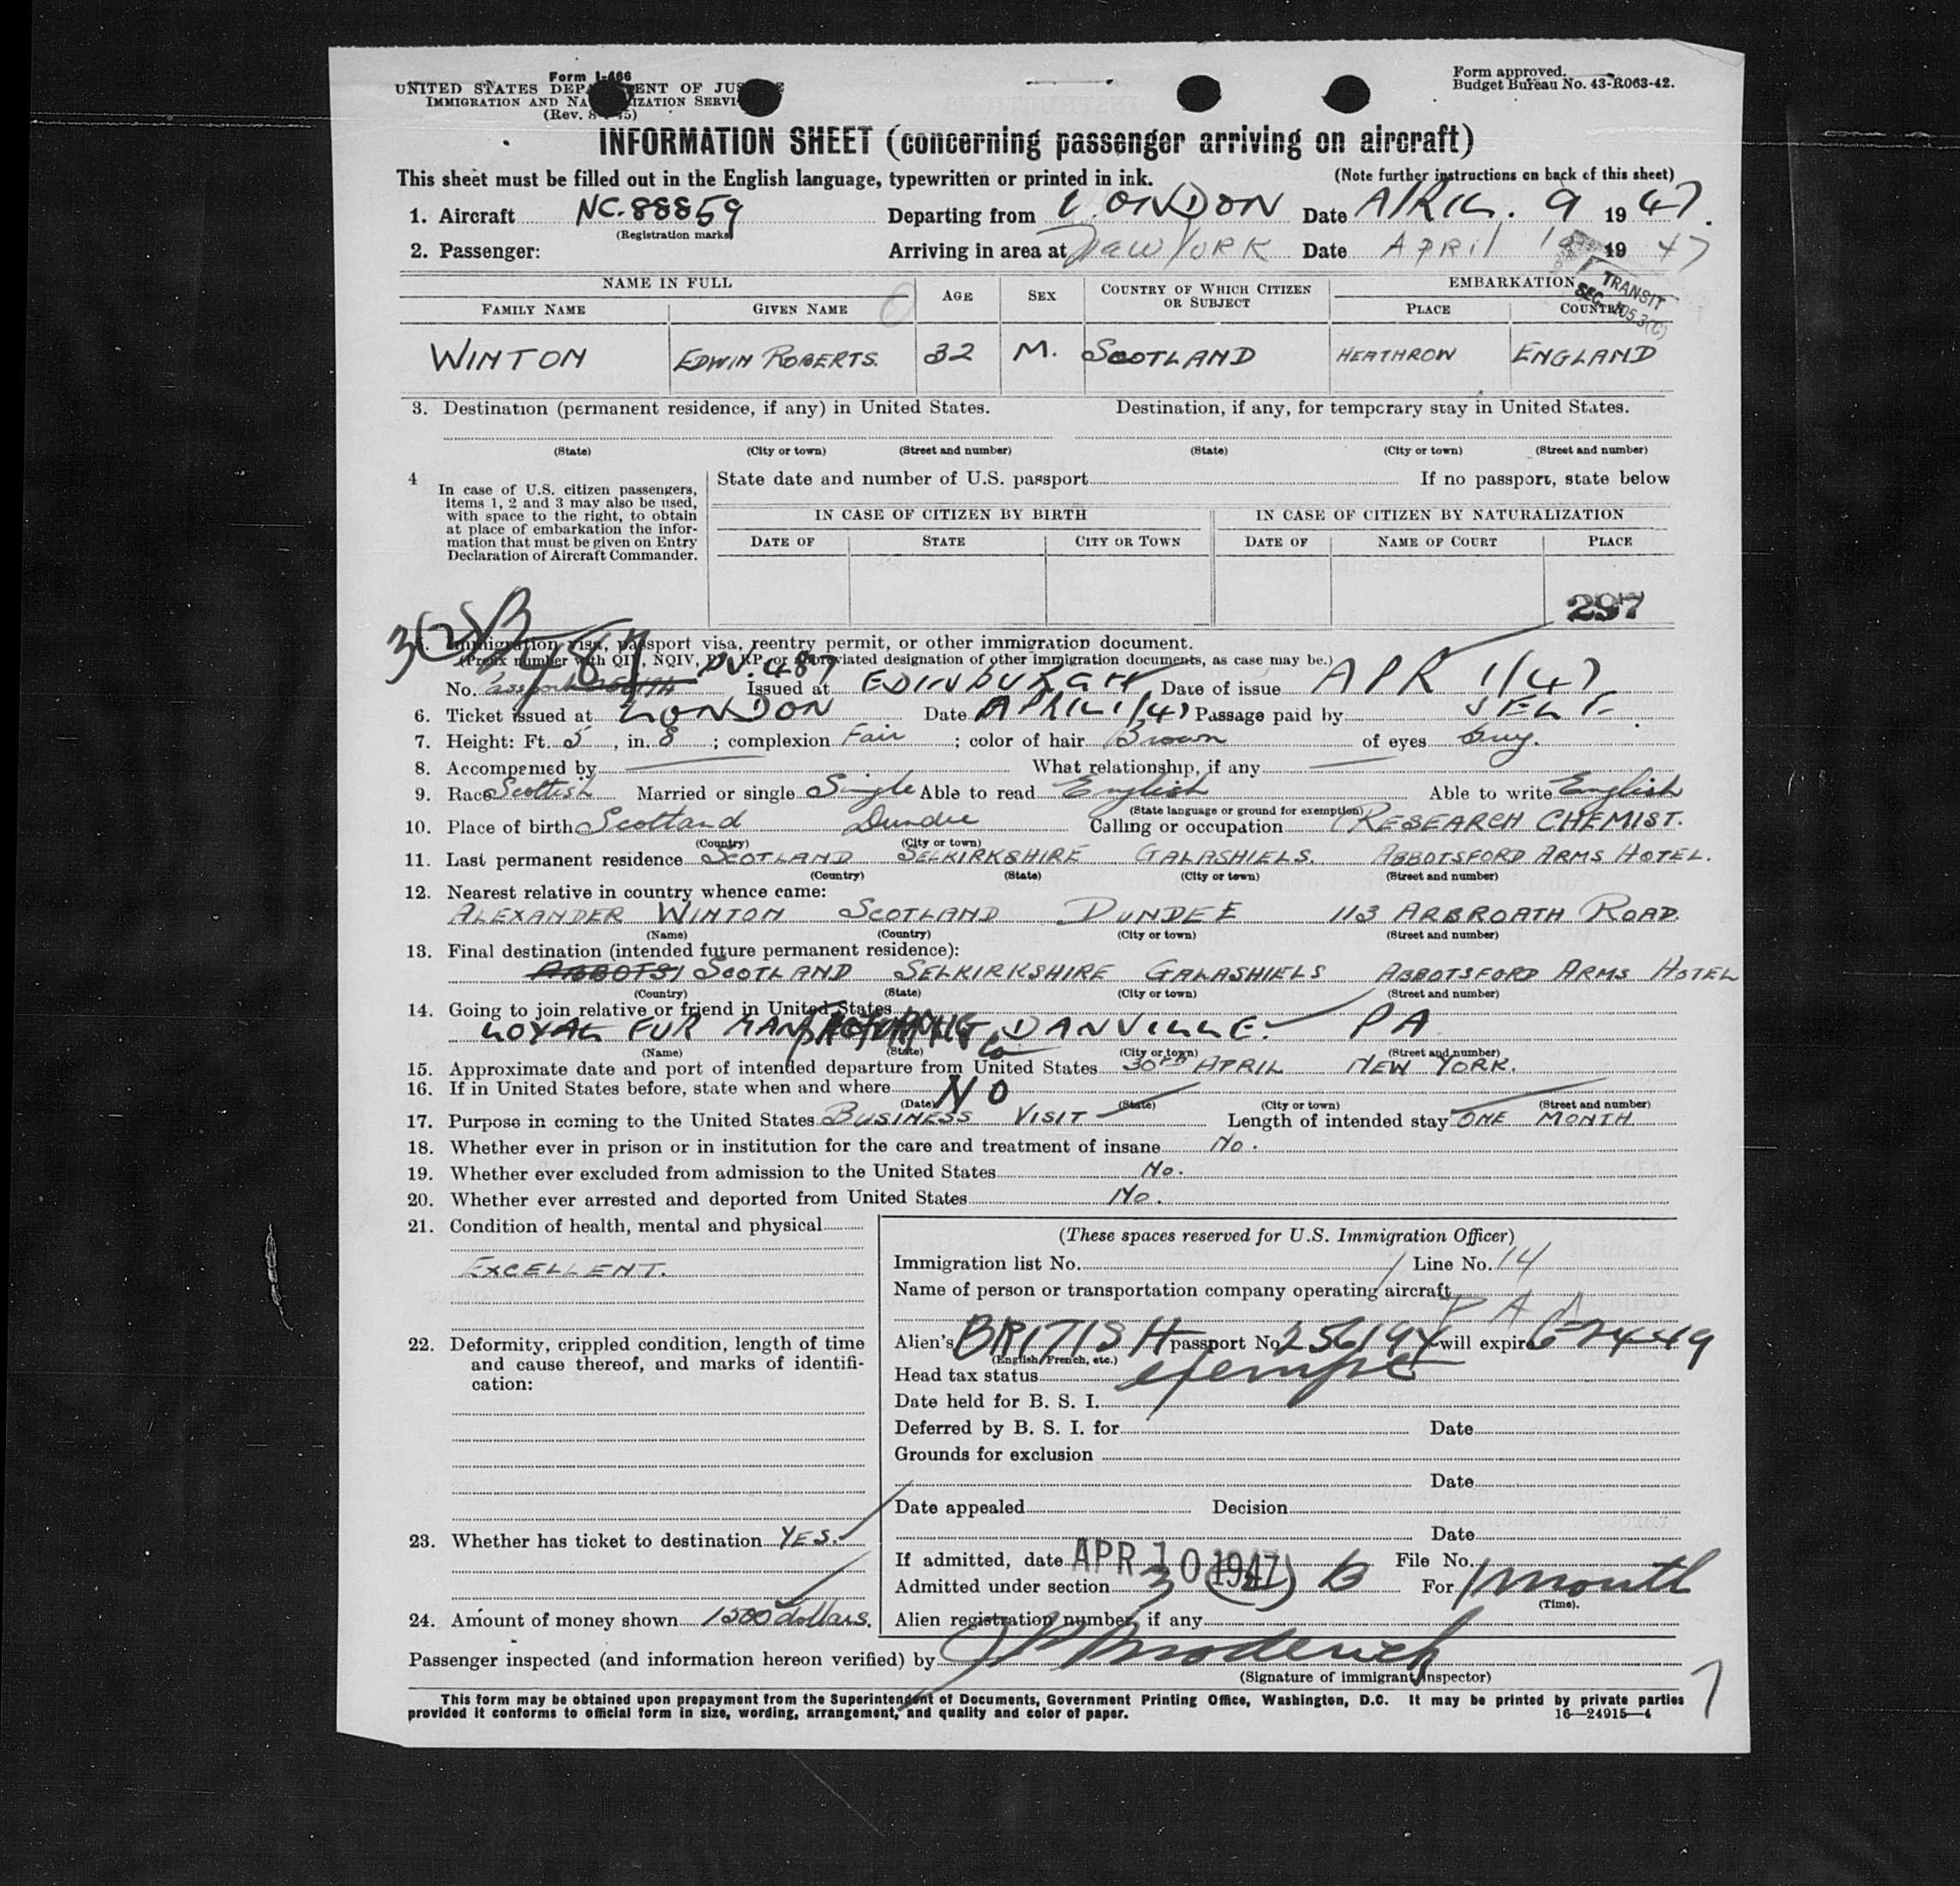 Form I-466
UNITED STATES DEPARTMENT OF JUSTICE
IMMIGRATION AND NATURALIZATION SERVICE
(Rev. 8-1-45)
Form approved.
Budget Bureau No. 43-R063-42.
INFORMATION SHEET (concerning passenger arriving on aircraft)
This sheet must be filled out in the English language, typewritten or printed in ink. (Note further instructions on back of this sheet)
1. Aircraft NC-88859 Departing from LONDON Date APRIL. 9 1947.
(Registration marks)
2. Passenger: Arriving in area at New York Date April 10 1947
TRANSIT
SEC. 105.3(C)
NAME IN FULL AGE SEX COUNTRY OF WHICH CITIZEN OR SUBJECT EMBARKATION
FAMILY NAME GIVEN NAME PLACE COUNTRY
WINTON EDWIN ROBERTS. 32 M. SCOTLAND HEATHROW ENGLAND
3. Destination (permanent residence, if any) in United States. Destination, if any, for temporary stay in United States.
(State) (City or town) (Street and number) (State) (City or town) (Street and number)
4 In case of U.S. citizen passengers, items 1, 2 and 3 may also be used, with space to the right, to obtain at place of embarkation the information that must be given on Entry Declaration of Aircraft Commander.
State date and number of U.S. passport If no passport, state below
IN CASE OF CITIZEN BY BIRTH IN CASE OF CITIZEN BY NATURALIZATION
DATE OF STATE CITY OR TOWN DATE OF NAME OF COURT PLACE
297
3(2)B
Immigration visa, passport visa, reentry permit, or other immigration document.
(Prefix number with QIV, NQIV, PV, RP, or abbreviated designation of other immigration documents, as case may be.)
No. PV. 487 Issued at EDINBURGH Date of issue APR 1/47
6. Ticket issued at LONDON Date APRIL 1/47 Passage paid by SELF.
7. Height: Ft. 5, in. 8; complexion Fair; color of hair Brown of eyes Grey.
8. Accompenied by What relationship, if any
9. Race Scottish Married or single Single Able to read English Able to write English
(State language or ground for exemption)
10. Place of birth Scotland Dundee Calling or occupation RESEARCH CHEMIST.
(Country) (City or town)
11. Last permanent residence SCOTLAND SELKIRKSHIRE GALASHIELS. ABBOTSFORD ARMS HOTEL.
(Country) (State) (City or town) (Street and number)
12. Nearest relative in country whence came:
ALEXANDER WINTON SCOTLAND DUNDEE 113 ARBROATH ROAD.
(Name) (Country) (City or town) (Street and number)
13. Final destination (intended future permanent residence):
ABBOTS SCOTLAND SELKIRKSHIRE GALASHIELS ABBOTSFORD ARMS HOTEL
(Country) (State) (City or town) (Street and number)
14. Going to join relative or friend in United States
LOYAL FUR Co DANVILLE. PA
(Name) (State) (City or town) (Street and number)
15. Approximate date and port of intended departure from United States 30TH APRIL NEW YORK.
16. If in United States before, state when and where NO
(Date) (State) (City or town) (Street and number)
17. Purpose in coming to the United States BUSINESS VISIT Length of intended stay ONE MONTH
18. Whether ever in prison or in institution for the care and treatment of insane No.
19. Whether ever excluded from admission to the United States No.
20. Whether ever arrested and deported from United States No.
21. Condition of health, mental and physical
EXCELLENT.
22. Deformity, crippled condition, length of time and cause thereof, and marks of identification:
23. Whether has ticket to destination YES.
24. Amount of money shown 1500 dollars.
(These spaces reserved for U.S. Immigration Officer)
Immigration list No. Line No. 14
Name of person or transportation company operating aircraft
P A A
Alien's BRITISH passport No. 256194 will expire 6-24-49
(English, French, etc.)
Head tax status exempt
Date held for B. S. I.
Deferred by B. S. I. for Date
Grounds for exclusion
Date
Date appealed Decision
Date
If admitted, date APR 10 1947 File No.
Admitted under section 3 (2) B For 1 month
(Time).
Alien registration number, if any
Passenger inspected (and information hereon verified) by
(Signature of immigrant inspector)
This form may be obtained upon prepayment from the Superintendent of Documents, Government Printing Office, Washington, D.C. It may be printed by private parties
provided it conforms to official form in size, wording, arrangement, and quality and color of paper. 16—24915—4